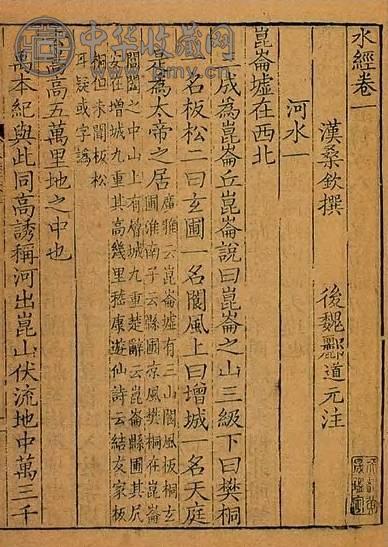 水經卷一
漢桑欽撰　後魏酈道元注
河水一
崑崙墟在西北
三成為崑崙丘崑崙說曰崑崙之山三級下曰樊桐
一名板松二曰玄圃一名閬風上曰增城一名天庭
是為太帝之居
廣雅云崑崙墟有三山閬風板桐玄
圃淮南子云縣圃涼風樊桐在崑崙
閶闔之中山上有層城九重楚辭云崑崙縣圃其凥
安在增城九重其高幾里嵇康遊仙詩云結友家板
桐但未聞板松
耳疑或字譌
去嵩高五萬里地之中也
禹本紀與此同高誘稱河出崑山伏流地中萬三千
中华收藏网
www.pmyv.cn